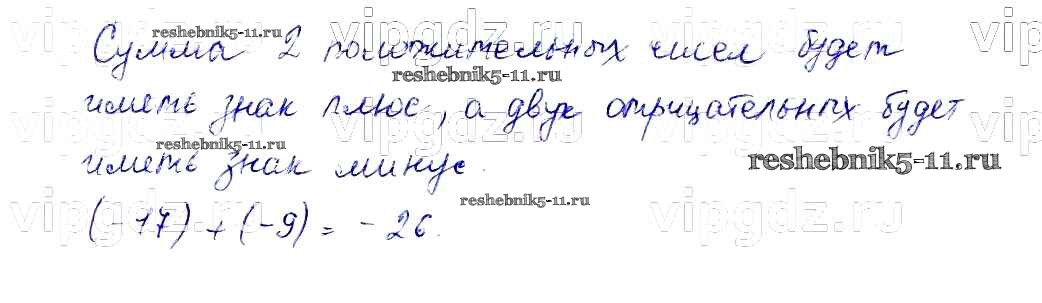 Сумма 2 положительных чисел будет
иметь знак плюс, а двух отрицательных будет
иметь знак минус.
(-17) + (-9) = -26.
reshebnik5-11.ru
reshebnik5-11.ru
reshebnik5-11.ru
reshebnik5-11.ru
reshebnik5-11.ru
vipgdz.ru
vipgdz.ru
vipgdz.ru
vipgdz.ru
vipgdz.ru
vipgdz.ru